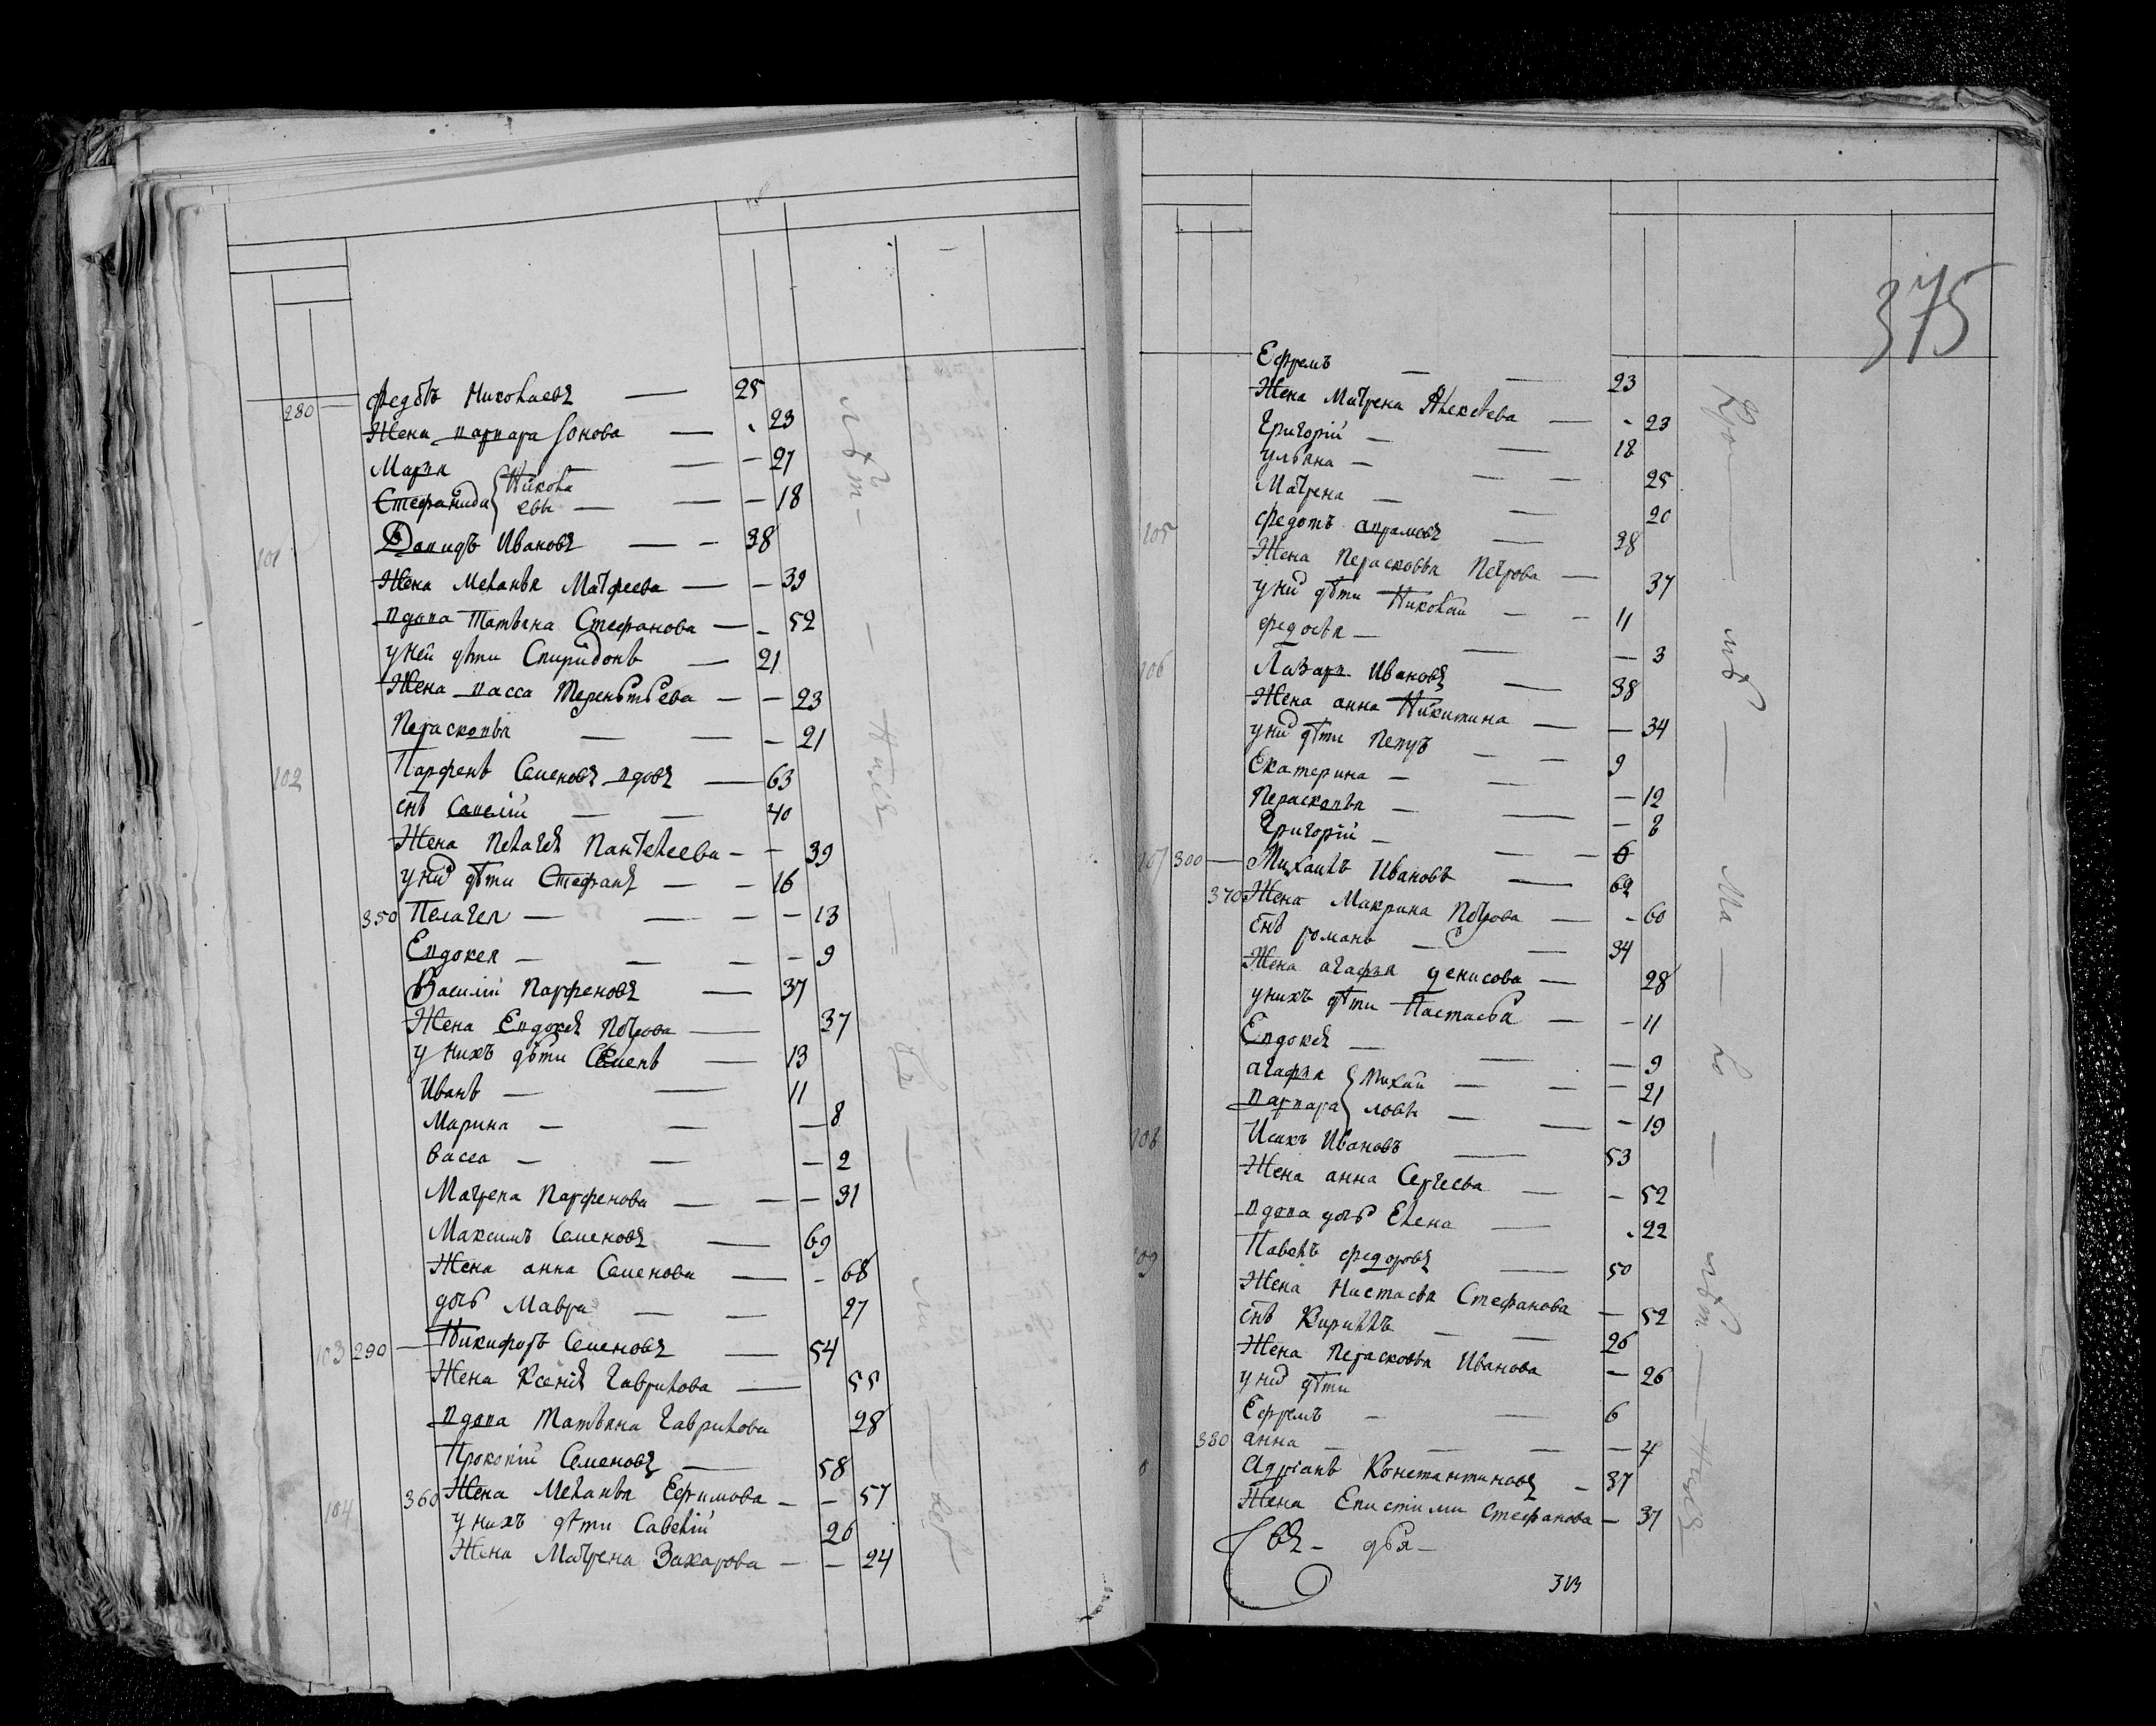 280 — Федотъ Николаевъ — 25
Жена Варвара Іонова — 23
Марѳа — 27
Стефанида } Николаевы — 18
101 Давидъ Ивановъ — 38
Жена Меланья Матфеева — 39
вдова Татьяна Стефанова — 52
у ней дѣти Спиридонъ — 21
Жена Васса Терентьева — 23
Перасковья — 21
102 Парфенъ Семеновъ вдовъ — 63
снъ Савелій — 40
Жена Пелагея Пантелеева — 39
у них дѣти Стефанъ — 16
350 Пелагея — 13
Евдокея — 9
Василій Парфеновъ — 37
Жена Евдокея Петрова — 37
у нихъ дѣти Семенъ — 13
Иванъ — 11
Марина — 8
васса — 2
Матрена Парфенова — 31
Максимъ Семеновъ — 69
Жена анна Семенова — 68
дочь Мавра — 27
103 290 — Никифоръ Семеновъ — 54
Жена Ксенія Гаврилова — 55
вдова Татьяна Гаврилова 28
Прокопій Семеновъ — 58
104 360 Жена Меланья Ефимова — 57
у нихъ дѣти Савелій 26
Жена Матрена Захарова — 24
375
Ефремъ — 23
Жена Матрена Алексѣева — 23
Григорій — 18
ульяна — 25
Матрена — 20
105 федотъ аврамовъ — 38
Жена Перасковья Петрова — 37
у них дѣти Николай — 11
федосья — 3
106 Лазарь Ивановъ — 38
Жена анна Никитина — 34
у них дѣти Петръ — 9
Екатерина — 12
Перасковья — 8
Григорій — 6
107 300 — Михаилъ Ивановъ — 62
370 Жена Макрина Петрова — 60
снъ романъ — 34
Жена агафья денисова — 28
у нихъ дѣти Настасья — 11
Евдокея — 9
агафья } Михайловы — 21
варвара — 19
108 Исакъ Ивановъ — 53
Жена анна Сергеева — 52
вдова дочь Елена — 22
109 Павелъ федоровъ — 50
Жена Настасья Стефанова — 52
снъ Кирилъ — 26
Жена Перасковья Иванова — 26
у них дѣти
Ефремъ — 6
380 анна — 4
Адріанъ Константиновъ — 37
Жена Епистими Стефанова — 37